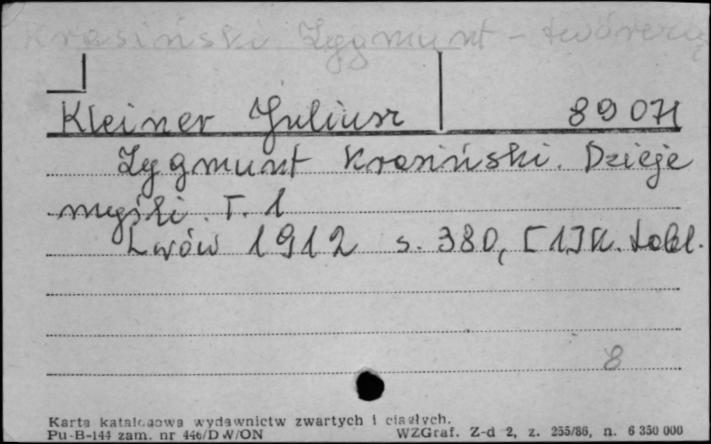 Krasiński Zygmunt - twórczość
Kleiner Juliusz 8907I
Zygmunt Krasiński. Dzieje
myśli. T. 1
Lwów 1912 s. 380, [1] K. tabl.
8
Karta katalogowa wydawnictw zwartych i ciągłych.
Pu-B-144 zam. nr 446/DW/ON WZGraf. Z-d 2, z. 255/86, n. 6 350 000